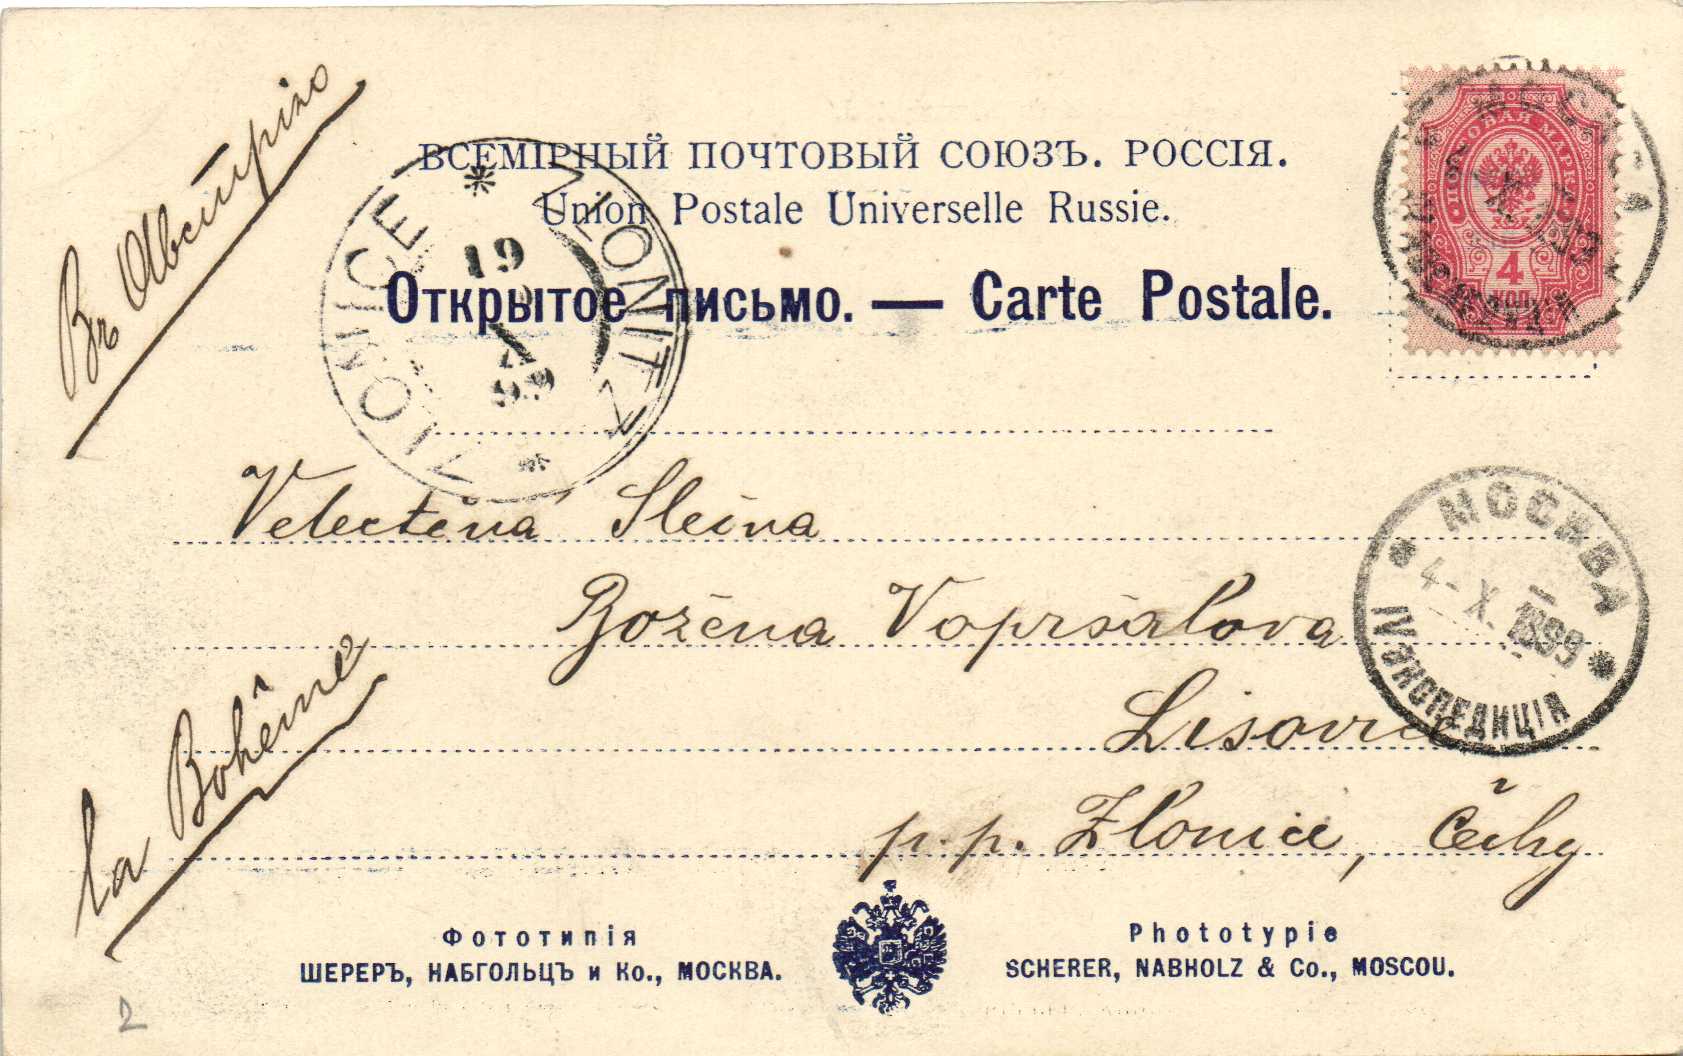 Въ Австрію
ВСЕМІРНЫЙ ПОЧТОВЫЙ СОЮЗЪ. РОССІЯ.
Union Postale Universelle Russie.
Открытое письмо. — Carte Postale.
ПОЧТОВАЯ МАРКА
4
КОП.
ZLONICE * ZLONITZ *
19
X
99
МОСКВА
4-X.1899
IV ЭКСПЕДИЦІЯ
Velectěná Slečna
Božena Vopršalova
Lisovice
p. p. Zlonice, Čechy
la Bohême
Фототипія
ШЕРЕРЪ, НАБГОЛЬЦЪ и Ко., МОСКВА.
Phototypie
SCHERER, NABHOLZ & Co., MOSCOU.
2